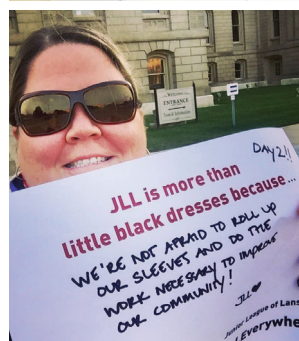 WELCOME
ENTRANCE
DAY 2!!
JLL is more than
little black dresses because...
WE'RE NOT AFRAID TO ROLL UP
OUR SLEEVES AND DO THE
WORK NECESSARY TO IMPROVE
OUR COMMUNITY!
JLL♥
Junior League of Lans
Everywhe